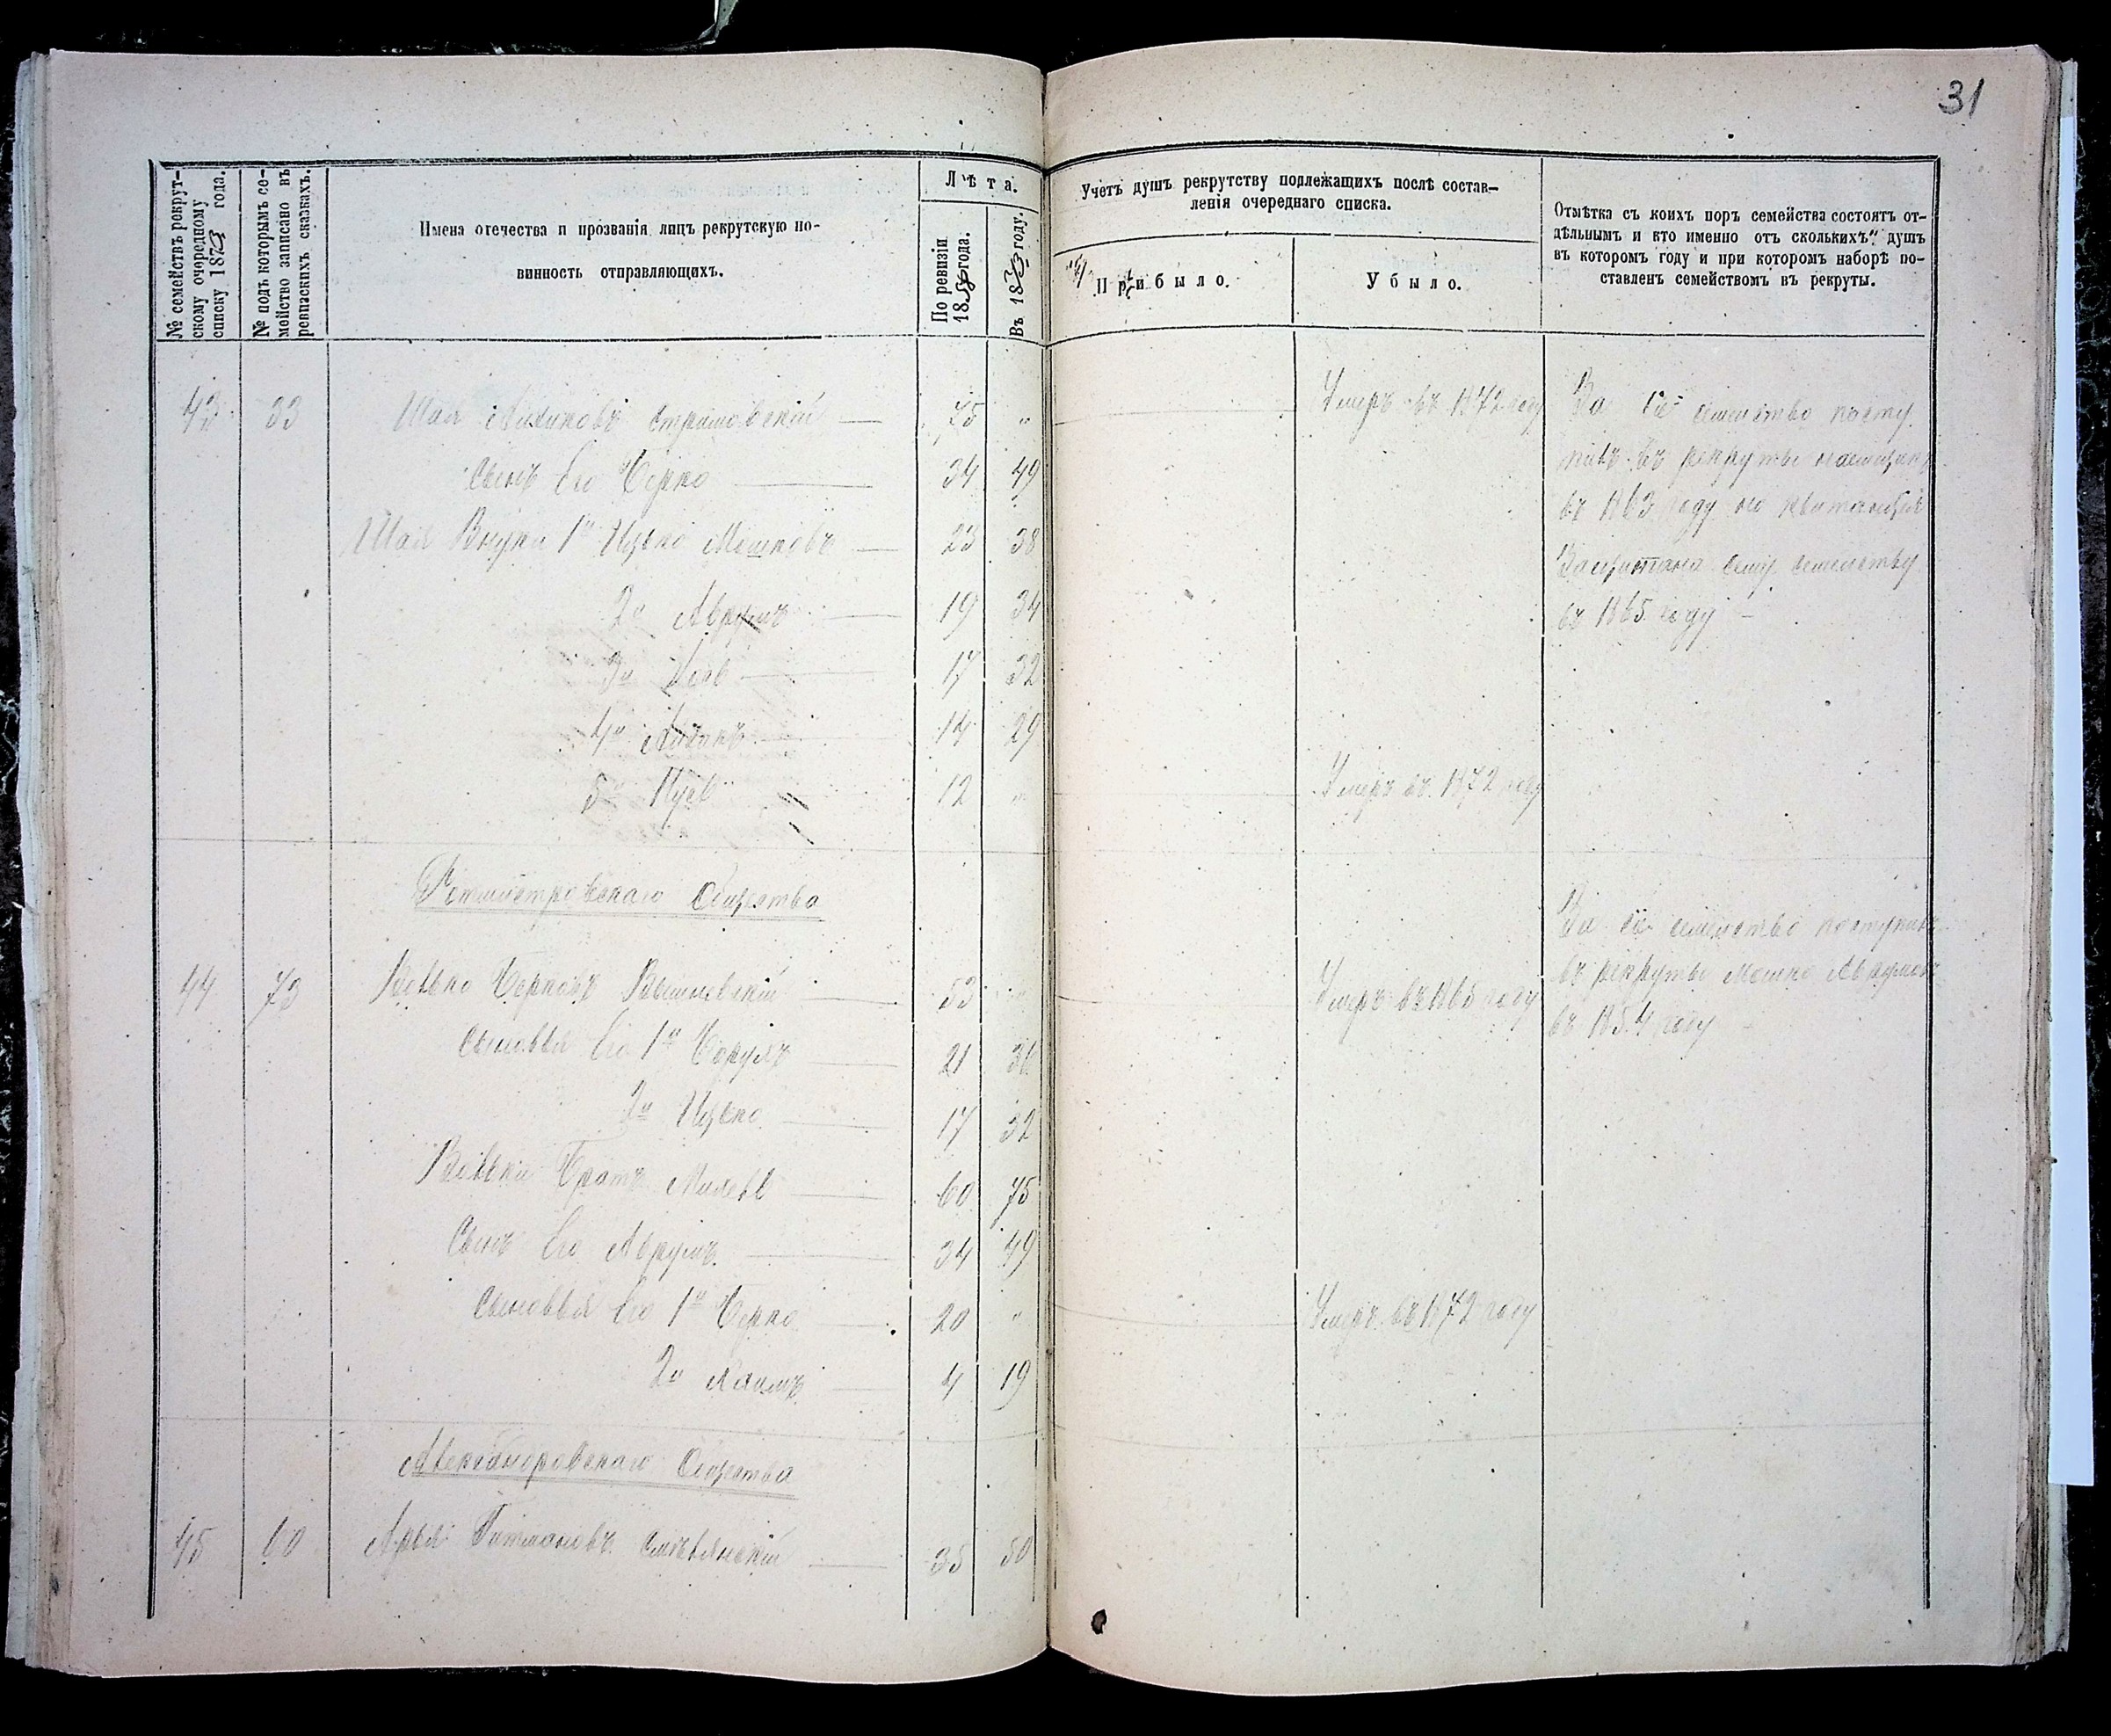 31
№ семействъ рекрут-
скому очередному
списку 1873 года.
№ подъ которымъ се-
мейство записано въ
ревизскихъ сказкахъ.
Имена отечества и прозванія лицъ рекрутскую по-
винность отправляющихъ.
Лѣта.
По ревизіи
1858 года.
Въ 1873 году.
Учетъ душъ рекрутству подлежащихъ послѣ состав-
ленія очереднаго списка.
Прибыло.
Убыло.
Отмѣтка съ коихъ поръ семейства состоятъ от-
дѣльнымъ и кто именно отъ сколькихъ душъ
въ которомъ году и при которомъ наборѣ по-
ставленъ семействомъ въ рекруты.
43 33 Шая 75 " Умеръ въ 1872 году
За сіе семейство посту
пилъ въ рекруты
въ 1863 году но квитанція
Засчитана сему семейству
въ 1865 году
Сынъ Его Берко 34 49
Шаи Внуки 1й Ицько Мошковъ 23 38
2й Аврумъ 19 34
3й 17 32
4й 14 29
5й 12 " Умеръ въ 1872 году
Ротмистровскаго Общества
44 73 Волько Берковъ Вышневскій 53 " Умеръ въ 1865 году
За сіе семейство поступилъ
въ рекруты Мошко Аврумов
въ 1854 году
Сыновья Его 1й 21 36
2й Ицько 17 32
Вольки Братъ 60 75
Сынъ Его Аврумъ 34 49
Сыновья Его 1й Берко 20 " Умеръ въ 1872 году
2й Хаимъ 4 19
Александровскаго Общества
45 60 35 50